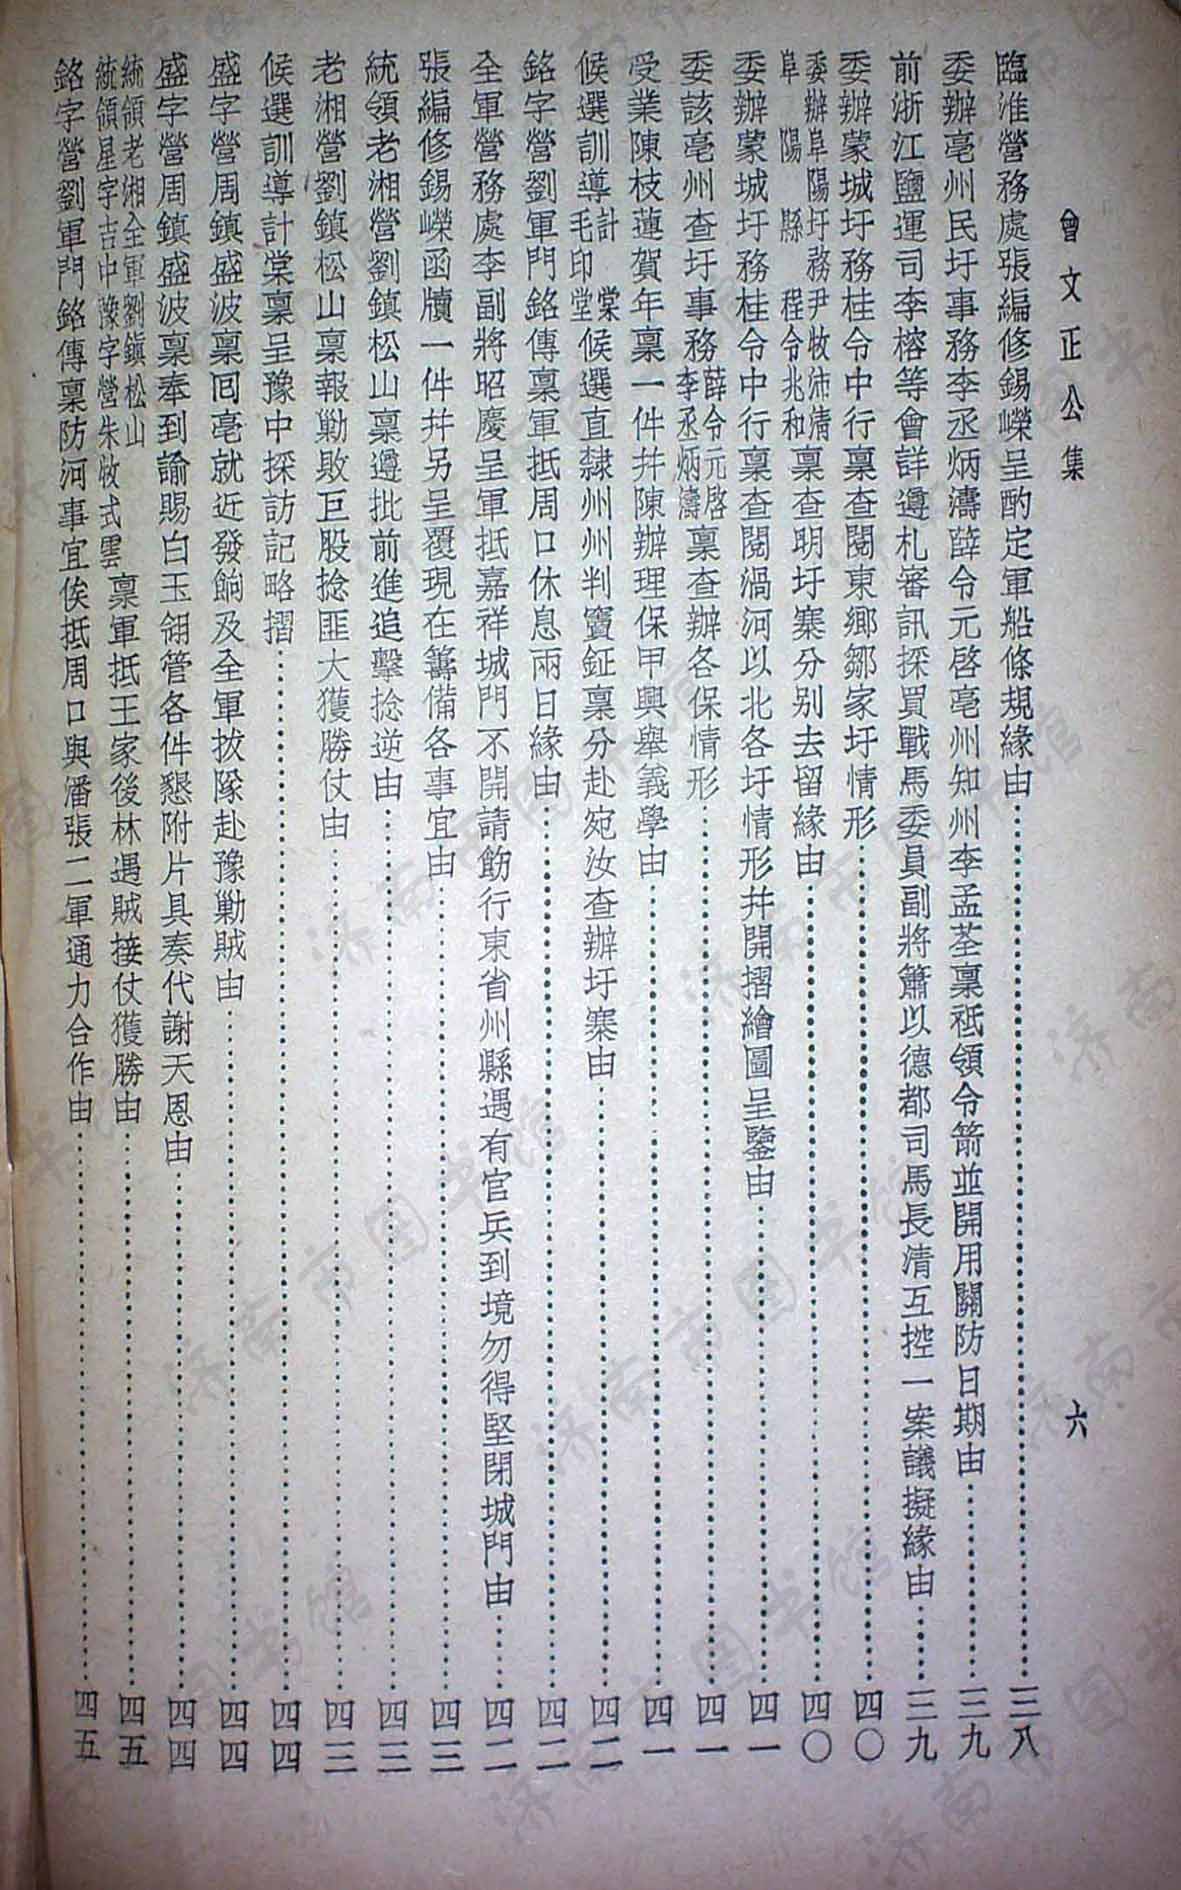 曾文正公集
六
臨淮營務處張編修錫嶸呈酌定軍船條規緣由……三八
委辦亳州民圩事務李丞炳濤薛令元啓亳州知州李孟荃稟祗領令箭並開用關防日期由……三九
前浙江鹽運司李榕等會詳遵札審訊採買戰馬委員副將簫以德都司馬長清互控一案議擬緣由……三九
委辦蒙城圩務桂令中行稟查閱東鄉鄒家圩情形……四〇
委辦阜陽圩務尹牧沛清
阜陽縣程令兆和稟查明圩寨分别去留緣由……四〇
委辦蒙城圩務桂令中行稟查閱渦河以北各圩情形幷開摺繪圖呈鑒由……四一
委該亳州查圩事務薛令元啓李丞炳濤稟查辦各保情形……四一
受業陳枝蓮賀年稟一件幷陳辦理保甲興舉義學由……四一
候選訓導計棠毛印堂候選直隸州州判竇鉦稟分赴宛汝查辦圩寨由……四二
銘字營劉軍門銘傳稟軍抵周口休息兩日緣由……四二
全軍營務處李副將昭慶呈軍抵嘉祥城門不開請飭行東省州縣遇有官兵到境勿得堅閉城門由……四二
張編修錫嶸函牘一件幷另呈覆現在籌備各事宜由……四三
統領老湘營劉鎮松山稟遵批前進追擊捻逆由……四三
老湘營劉鎮松山稟報勦敗巨股捻匪大獲勝仗由……四三
候選訓導計棠稟呈豫中採訪記略摺……四四
盛字營周鎮盛波稟囘亳就近發餉及全軍拔隊赴豫勦賊由……四四
盛字營周鎮盛波稟奉到諭賜白玉翎管各件懇附片具奏代謝天恩由……四四
統領老湘全軍劉鎮松山
統領星字吉中豫字營朱牧式雲稟軍抵王家後林遇賊接仗獲勝由……四五
銘字營劉軍門銘傳稟防河事宜俟抵周口與潘張二軍通力合作由……四五
济南市图书馆